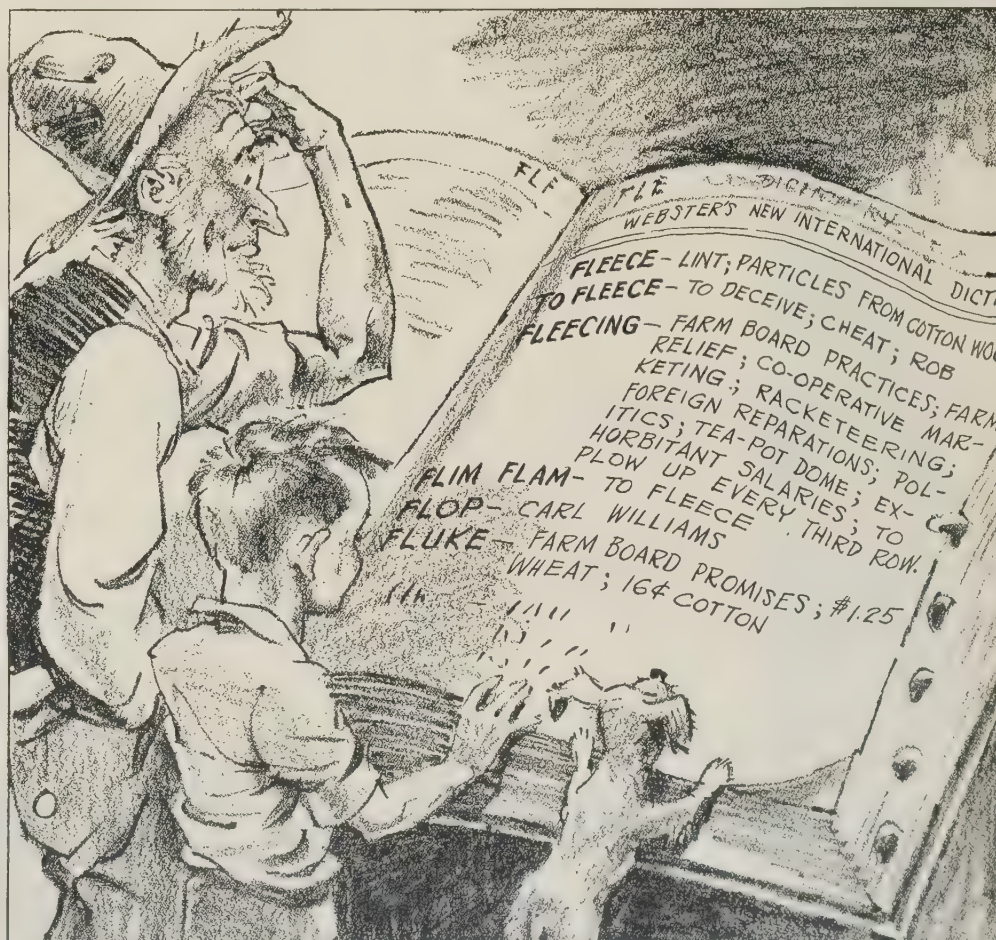 FLE
FLE
WEBSTER'S NEW INTERNATIONAL DICT
FLEECE - LINT; PARTICLES FROM COTTON WOO
TO FLEECE - TO DECEIVE; CHEAT; ROB
FLEECING - FARM BOARD PRACTICES; FARM
RELIEF; CO-OPERATIVE MAR-
KETING; RACKETEERING;
FOREIGN REPARATIONS; POL-
ITICS; TEA-POT DOME; EX-
HORBITANT SALARIES; TO
PLOW UP EVERY THIRD ROW.
FLIM FLAM - TO FLEECE
FLOP - CARL WILLIAMS
FLUKE - FARM BOARD PROMISES; $1.25
WHEAT; 16¢ COTTON